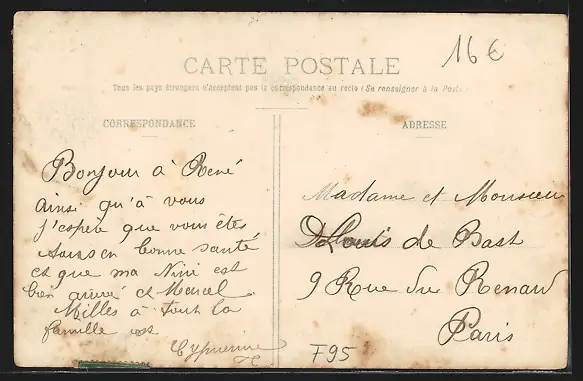 16€
CARTE POSTALE
Tous les pays étrangers n'acceptent pas la correspondance au recto (Se renseigner à la Poste)
CORRESPONDANCE
ADRESSE
Bonjour à René
ainsi qu'à vous
j'espère que vous êtes
en bonne santé
et que ma Nini est
bien arrivé et Marcel
Milles à tout la
famille
Cyprienne
Madame et Monsieur
Louis de Bast
9 Rue du Renard
Paris
F95